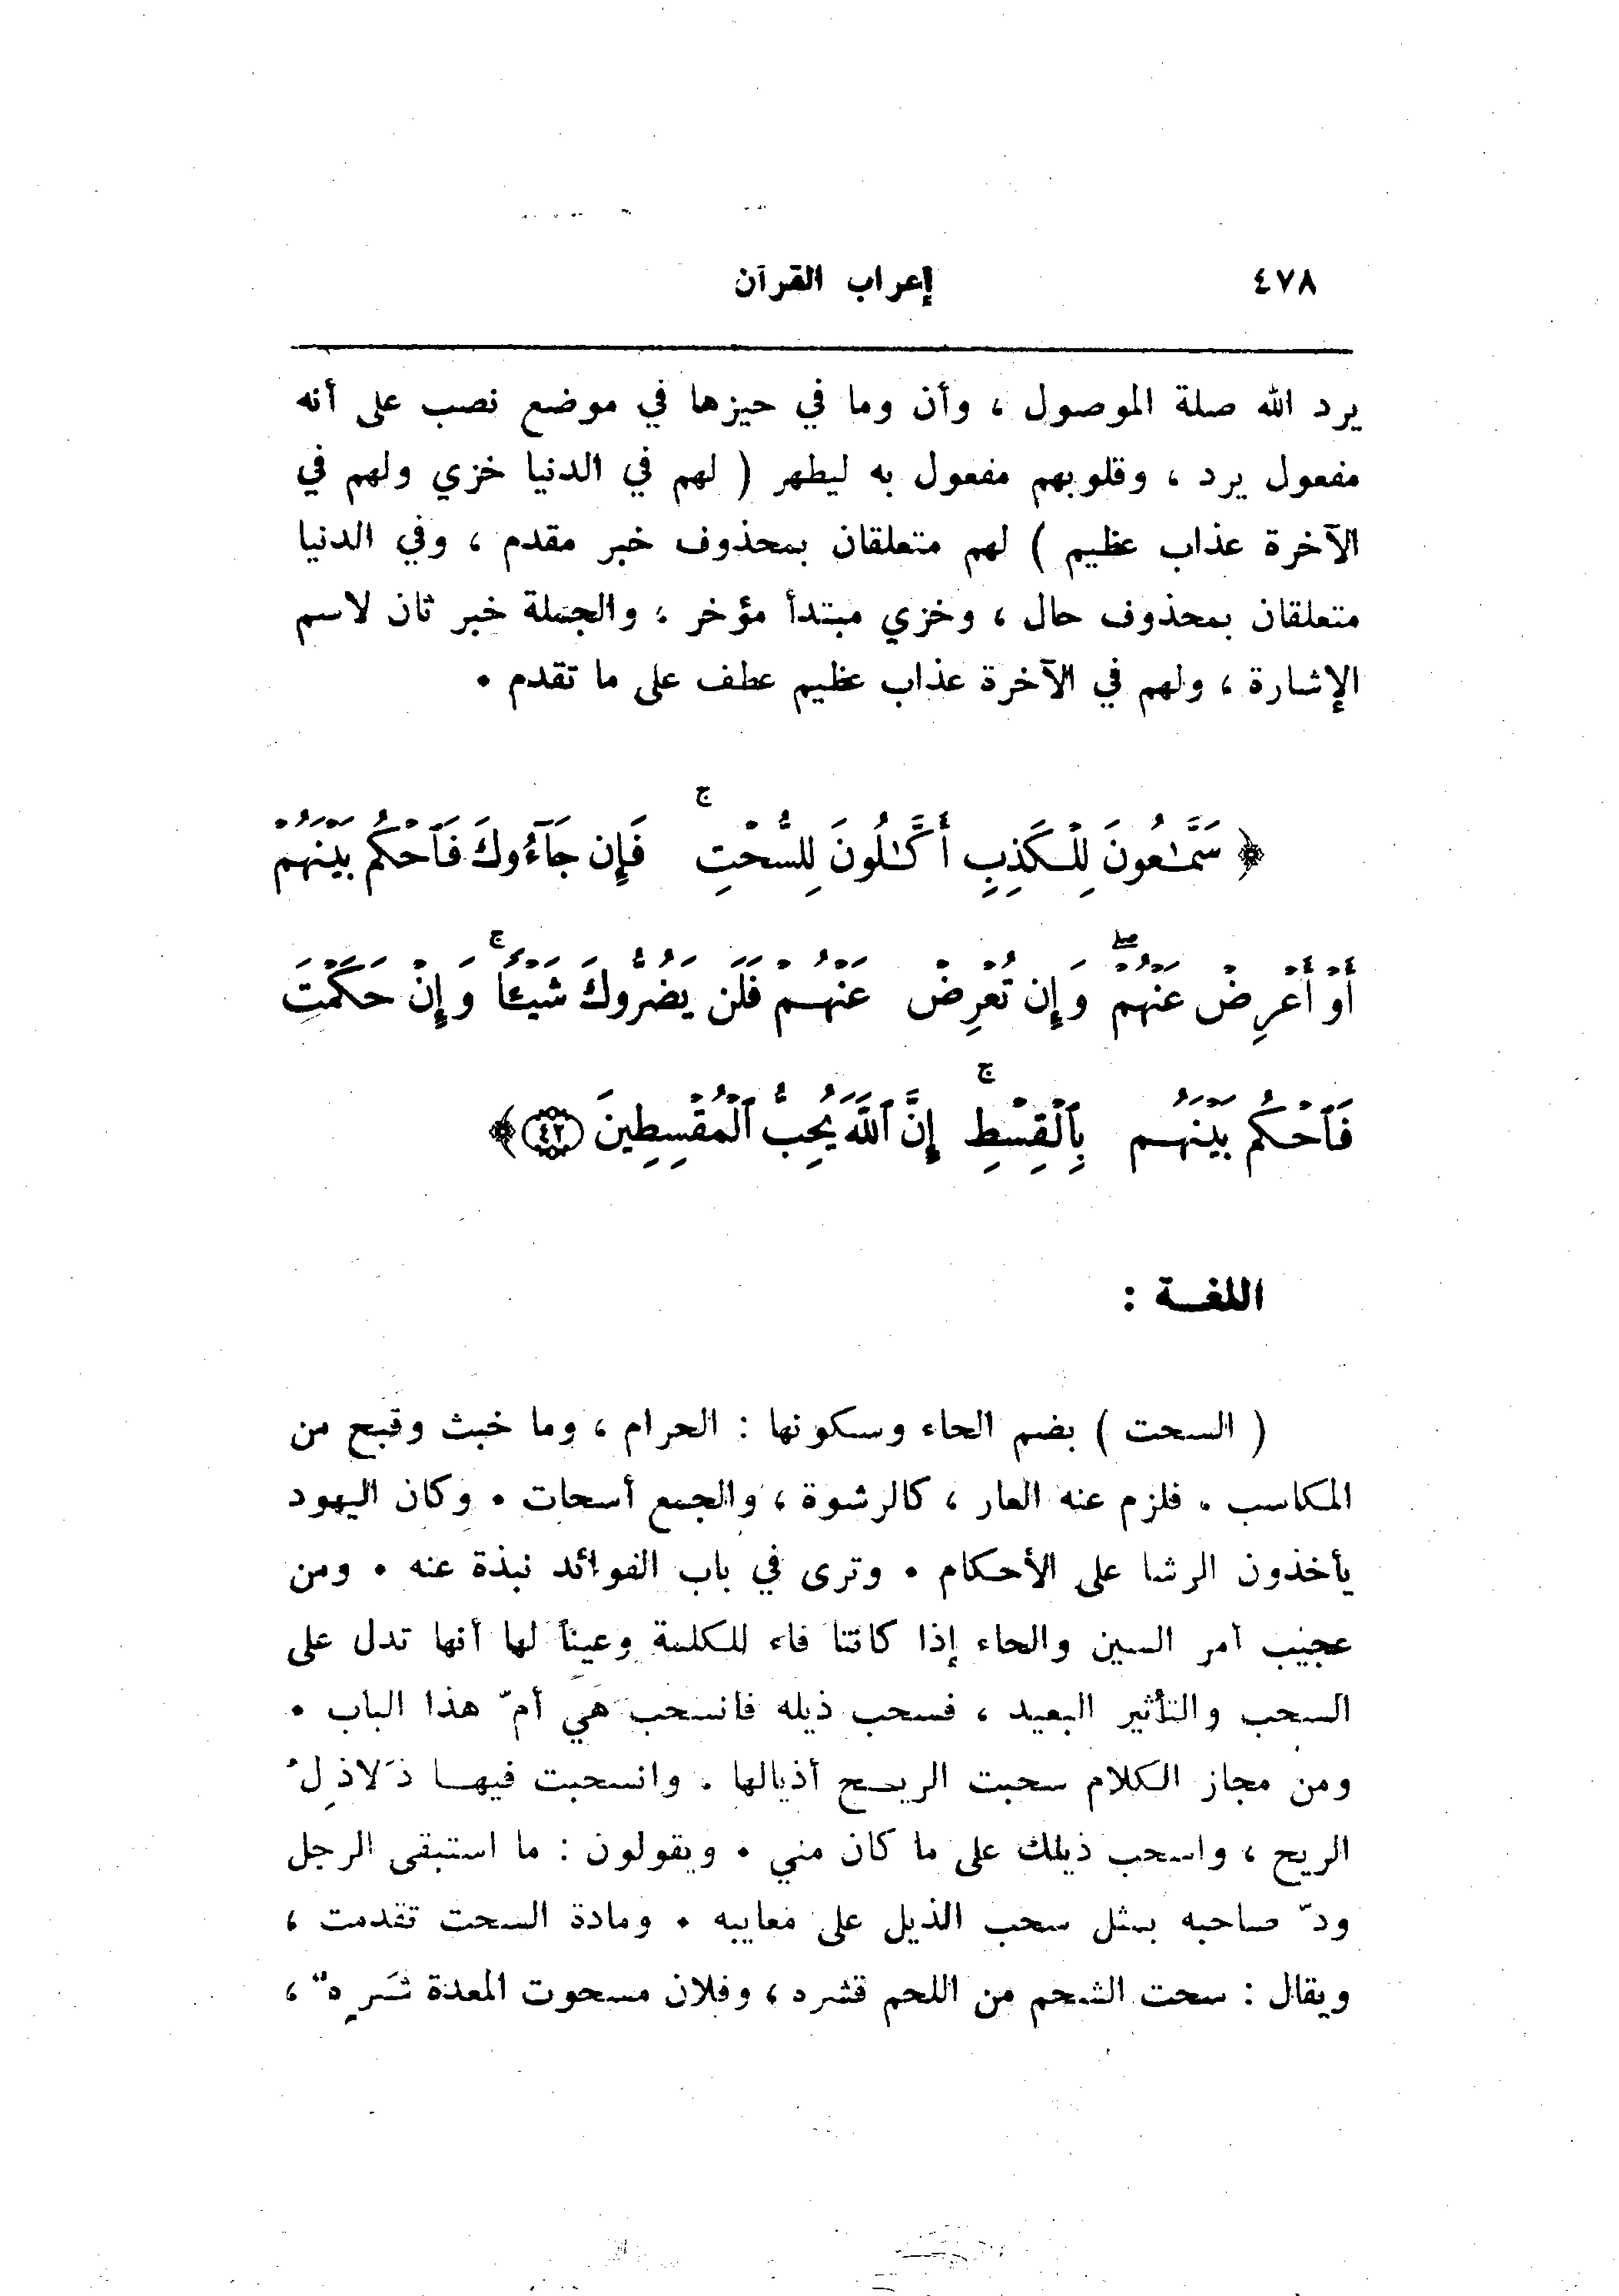 ٤٧٨ إعراب القرآن
يرد الله صلة الموصول ، وأن وما في حيزها في موضع نصب على أنه
مفعول يرد ، وقلوبهم مفعول به ليطهر ( لهم في الدنيا خزي ولهم في
الآخرة عذاب عظيم ) لهم متعلقان بمحذوف خبر مقدم ، وفي الدنيا
متعلقان بمحذوف حال ، وخزي مبتدأ مؤخر ، والجملة خبر ثان لاسم
الإشارة ، ولهم في الآخرة عذاب عظيم عطف على ما تقدم .
﴿ سَمَّـٰعُونَ لِلْكَذِبِ أَكَّـٰلُونَ لِلسُّحْتِ ۚ فَإِن جَآءُوكَ فَٱحْكُم بَيْنَهُمْ
أَوْ أَعْرِضْ عَنْهُمْ ۖ وَإِن تُعْرِضْ عَنْهُمْ فَلَن يَضُرُّوكَ شَيْـًٔا ۚ وَإِنْ حَكَمْتَ
فَٱحْكُم بَيْنَهُم بِٱلْقِسْطِ ۚ إِنَّ ٱللَّهَ يُحِبُّ ٱلْمُقْسِطِينَ ٤٢ ﴾
اللغـــة :
( السحت ) بضم الحاء وسكونها : الحرام ، وما خبث وقبح من
المكاسب . فلزم عنه العار ، كالرشوة ، والجمع أسحات . وكان اليهود
يأخذون الرشا على الأحكام . وترى في باب الفوائد نبذة عنه . ومن
عجيب أمر السين والحاء إذا كانتا فاء للكلمة وعيناً لها أنها تدل على
السحب والتأثير البعيد ، فسحب ذيله فانسحب هي أمّ هذا الباب .
ومن مجاز الكلام سحبت الريـح أذيالها . وانسحبت فيهـا ذَلاذِلُ
الريح ، واسحب ذيلك على ما كان مني . ويقولون : ما استبقى الرجل
ودّ صاحبه بمثل سحب الذيل على معايبه . ومادة السحت تقدمت ،
ويقال : سحت الشحم من اللحم قشره ، وفلان مسحوت المعدة شَرِهٌ ،